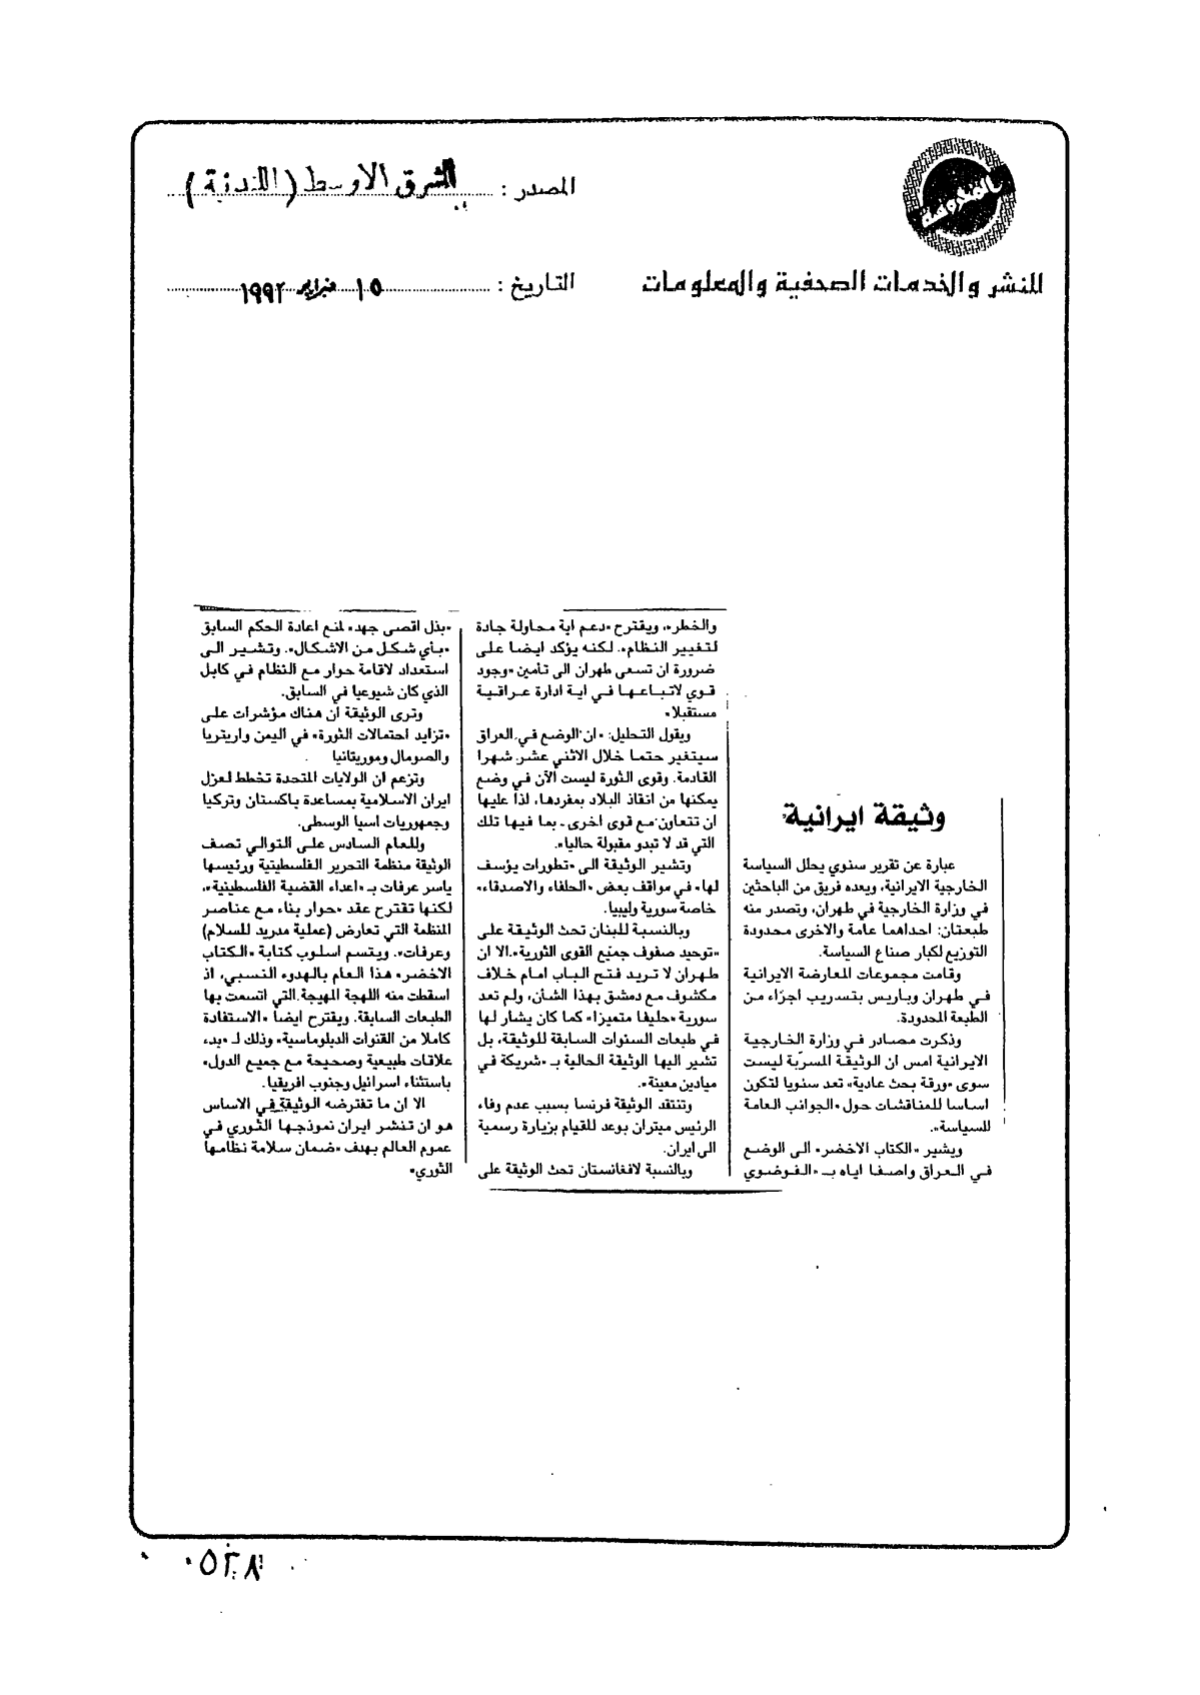 المصدر : الشرق الاوسط (اللندنية)
للنشر والخدمات الصحفية والمعلومات
التاريخ : ١٥ فبراير ١٩٩٢
وثيقة ايرانية
عبارة عن تقرير سنوي يحلل السياسة
الخارجية الايرانية، ويعده فريق من الباحثين
في وزارة الخارجية في طهران، وتصدر منه
طبعتان: احداهما عامة والاخرى محدودة
التوزيع لكبار صناع السياسة.
وقامت مجموعات المعارضة الايرانية
في طهران وباريس بتسريب اجزاء من
الطبعة المحدودة.
وذكرت مصادر في وزارة الخارجية
الايرانية امس ان الوثيقة المسرّبة ليست
سوى «ورقة بحث عادية» تعد سنويا لتكون
اساسا للمناقشات حول «الجوانب العامة
للسياسة».
ويشير «الكتاب الاخضر» الى الوضع
في العراق واصفا اياه بـ «الفوضوي
والخطر»، ويقترح «دعم اية محاولة جادة
لتغيير النظام». لكنه يؤكد ايضا على
ضرورة ان تسعى طهران الى تأمين «وجود
قوي لاتباعها في اية ادارة عراقية
مستقبلا»
ويقول التحليل: «ان الوضع في العراق
سيتغير حتما خلال الاثني عشر شهرا
القادمة. وقوى الثورة ليست الآن في وضع
يمكنها من انقاذ البلاد بمفردها، لذا عليها
ان تتعاون مع قوى اخرى ـ بما فيها تلك
التي قد لا تبدو مقبولة حاليا».
وتشير الوثيقة الى «تطورات يؤسف
لها» في مواقف بعض «الحلفاء والاصدقاء»
خاصة سورية وليبيا.
وبالنسبة للبنان تحث الوثيقة على
«توحيد صفوف جميع القوى الثورية». الا ان
طهران لا تريد فتح الباب امام خلاف
مكشوف مع دمشق بهذا الشأن، ولم تعد
سورية «حليفا متميزا» كما كان يشار لها
في طبعات السنوات السابقة للوثيقة، بل
تشير اليها الوثيقة الحالية بـ «شريكة في
ميادين معينة».
وتنتقد الوثيقة فرنسا بسبب عدم وفاء
الرئيس ميتران بوعد للقيام بزيارة رسمية
الى ايران.
وبالنسبة لافغانستان تحث الوثيقة على
«بذل اقصى جهد» لمنع اعادة الحكم السابق
«بأي شكل من الاشكال». وتشير الى
استعداد لاقامة حوار مع النظام في كابل
الذي كان شيوعيا في السابق.
وترى الوثيقة ان هناك مؤشرات على
«تزايد احتمالات الثورة» في اليمن واريتريا
والصومال وموريتانيا
وتزعم ان الولايات المتحدة تخطط لعزل
ايران الاسلامية بمساعدة باكستان وتركيا
وجمهوريات اسيا الوسطى.
وللعام السادس على التوالي تصف
الوثيقة منظمة التحرير الفلسطينية ورئيسها
ياسر عرفات بـ «اعداء القضية الفلسطينية»،
لكنها تقترح عقد «حوار بناء مع عناصر
المنظمة التي تعارض (عملية مدريد للسلام)
وعرفات». ويتسم اسلوب كتابة «الكتاب
الاخضر» هذا العام بالهدوء النسبي، اذ
اسقطت منه اللهجة المهيجة التي اتسمت بها
الطبعات السابقة. ويقترح ايضا «الاستفادة
كاملا من القنوات الدبلوماسية» وذلك لـ «بدء
علاقات طبيعية وصحيحة مع جميع الدول»
باستثناء اسرائيل وجنوب افريقيا.
الا ان ما تفترضه الوثيقة في الاساس
هو ان تنشر ايران نموذجها الثوري في
عموم العالم بهدف «ضمان سلامة نظامها
الثوري»